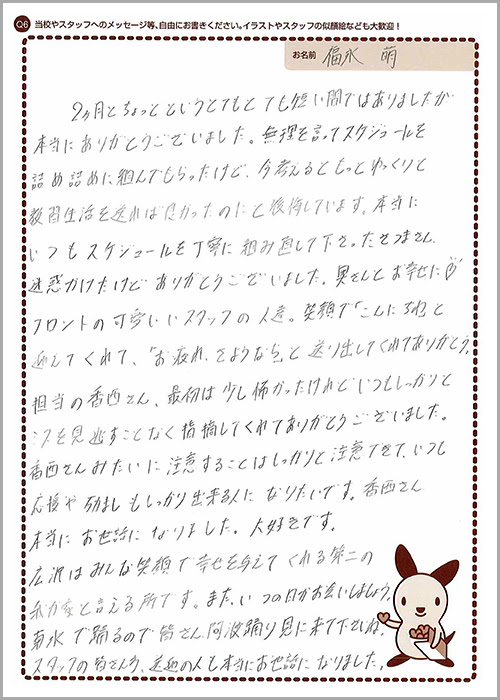 Q6 当校やスタッフへのメッセージ等、自由にお書きください。イラストやスタッフの似顔絵なども大歓迎！
お名前 福永 萌
2ヵ月とちょっとというとてもとても短い間ではありましたが
本当にありがとうございました。無理を言ってスケジュールを
詰め詰めに組んでもらったけど、今考えるともっとゆっくりと
教習生活を送れば良かったのにと後悔しています。本当に
いつもスケジュールを丁寧に組み直して下さった さん、
迷惑かけたけどありがとうございました。奥さんとお幸せに
フロントの可愛いいスタッフの人達。笑顔で「こんにちわ」と
迎えてくれて、「お疲れ、さようなら」と送り出してくれてありがとう。
担当の香西さん、最初は少し怖かったけれどいつもしっかりと
ミスを見逃すことなく指摘してくれてありがとうございました。
香西さんみたいに注意することはしっかりと注意できて、いつも
応援や励ましもしっかり出来る人になりたいです。香西さん
本当にお世話になりました。大好きです。
広沢はみんな笑顔で幸せを与えてくれる第二の
我が家と言える所です。また、いつの日かお会いしましょう。
菊水で踊るので皆さん、阿波踊り見に来て下さいね。
スタッフの皆さん方、送迎の人も本当にお世話になりました。